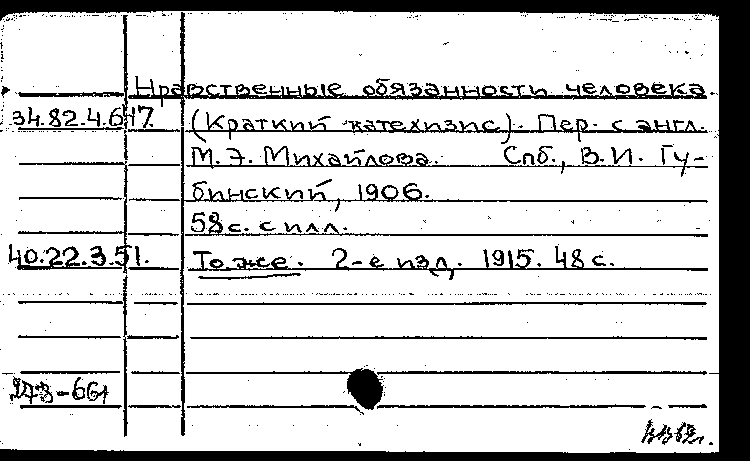 Нравственные обязанности человека.
34.82.4.617. (Краткий катехизис). Пер. с англ.
М. Э. Михайлова. Спб., В. И. Гу-
бинский, 1906.
58 с. с илл.
40.22.3.51. То же. 2-е изд. 1915. 48 с.
273-661